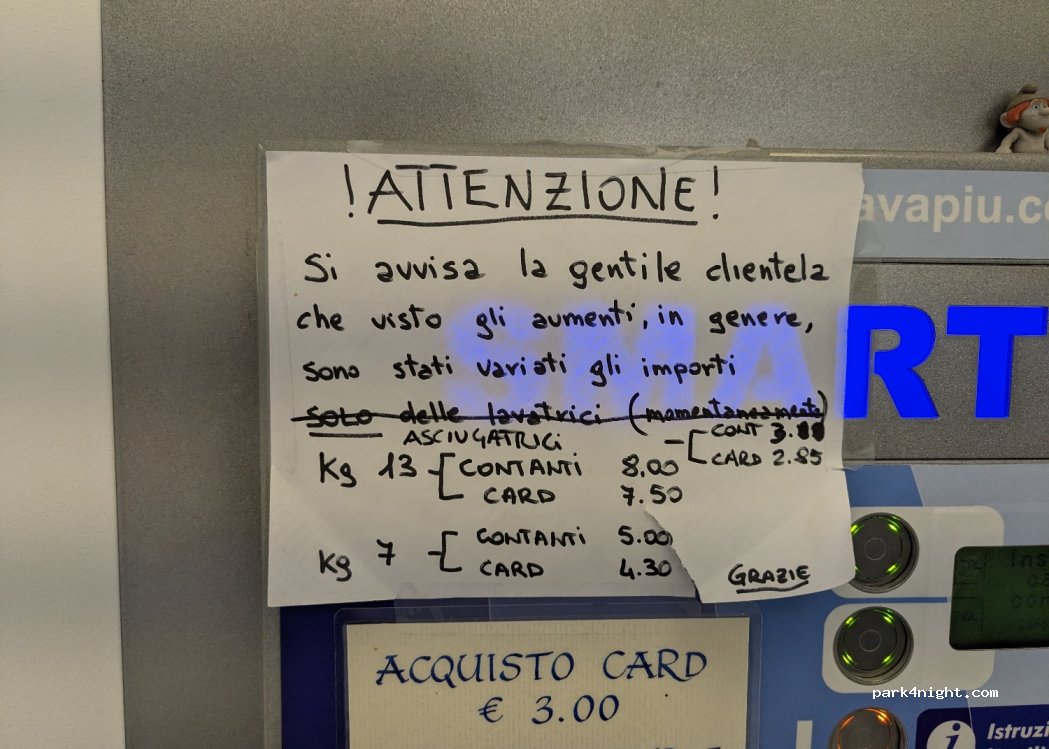 ! ATTENZIONE !
Si avvisa la gentile clientela
che visto gli aumenti, in genere,
sono stati variati gli importi
SOLO delle lavatrici (momentaneamente)
ASCIUGATRICI - CONT
CARD 2.85
Kg 13 CONTANTI 8,00
CARD 7.50
Kg 7 CONTANTI 5.00
CARD 4.30
GRAZIE
SMART
ACQUISTO CARD
€ 3.00
park4night.com